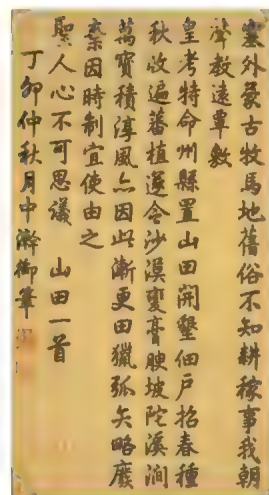 塞外蒙古牧馬地舊俗不知耕稼事我朝
聲教遠覃敷
皇考特命州縣置山田開墾佃戶招春種
秋收遍蕃植遂令沙漠變膏腴坡陀溪澗
萬寶積淳風亦因此漸更田獵弧矢略廢
棄因時制宜使由之
聖人心不可思議 山田一首
丁卯仲秋月中澣御筆